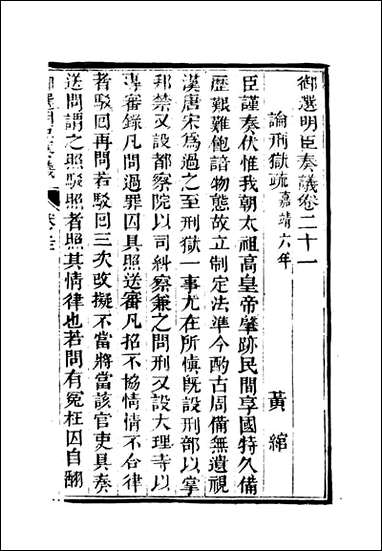 御選明臣奏議卷二十一
論刑獄疏嘉靖六年
黃綰
臣謹奏伏惟我朝太祖高皇帝肇跡民間享國特久備
歷艱難飽諳物態故立制定法準今酌古周備無遺視
漢唐宋爲過之至刑獄一事尤在所愼旣設刑部以掌
邦禁又設都察院以司糾察兼之問刑又設大理寺以
專審錄凡問過罪囚具照送審凡招不協情情不合律
者駁回再問若駁回三次改擬不當將當該官吏具奏
送問謂之照駁照者照其情律也若問有冤枉囚自翻
御選明臣奏議 卷二十一